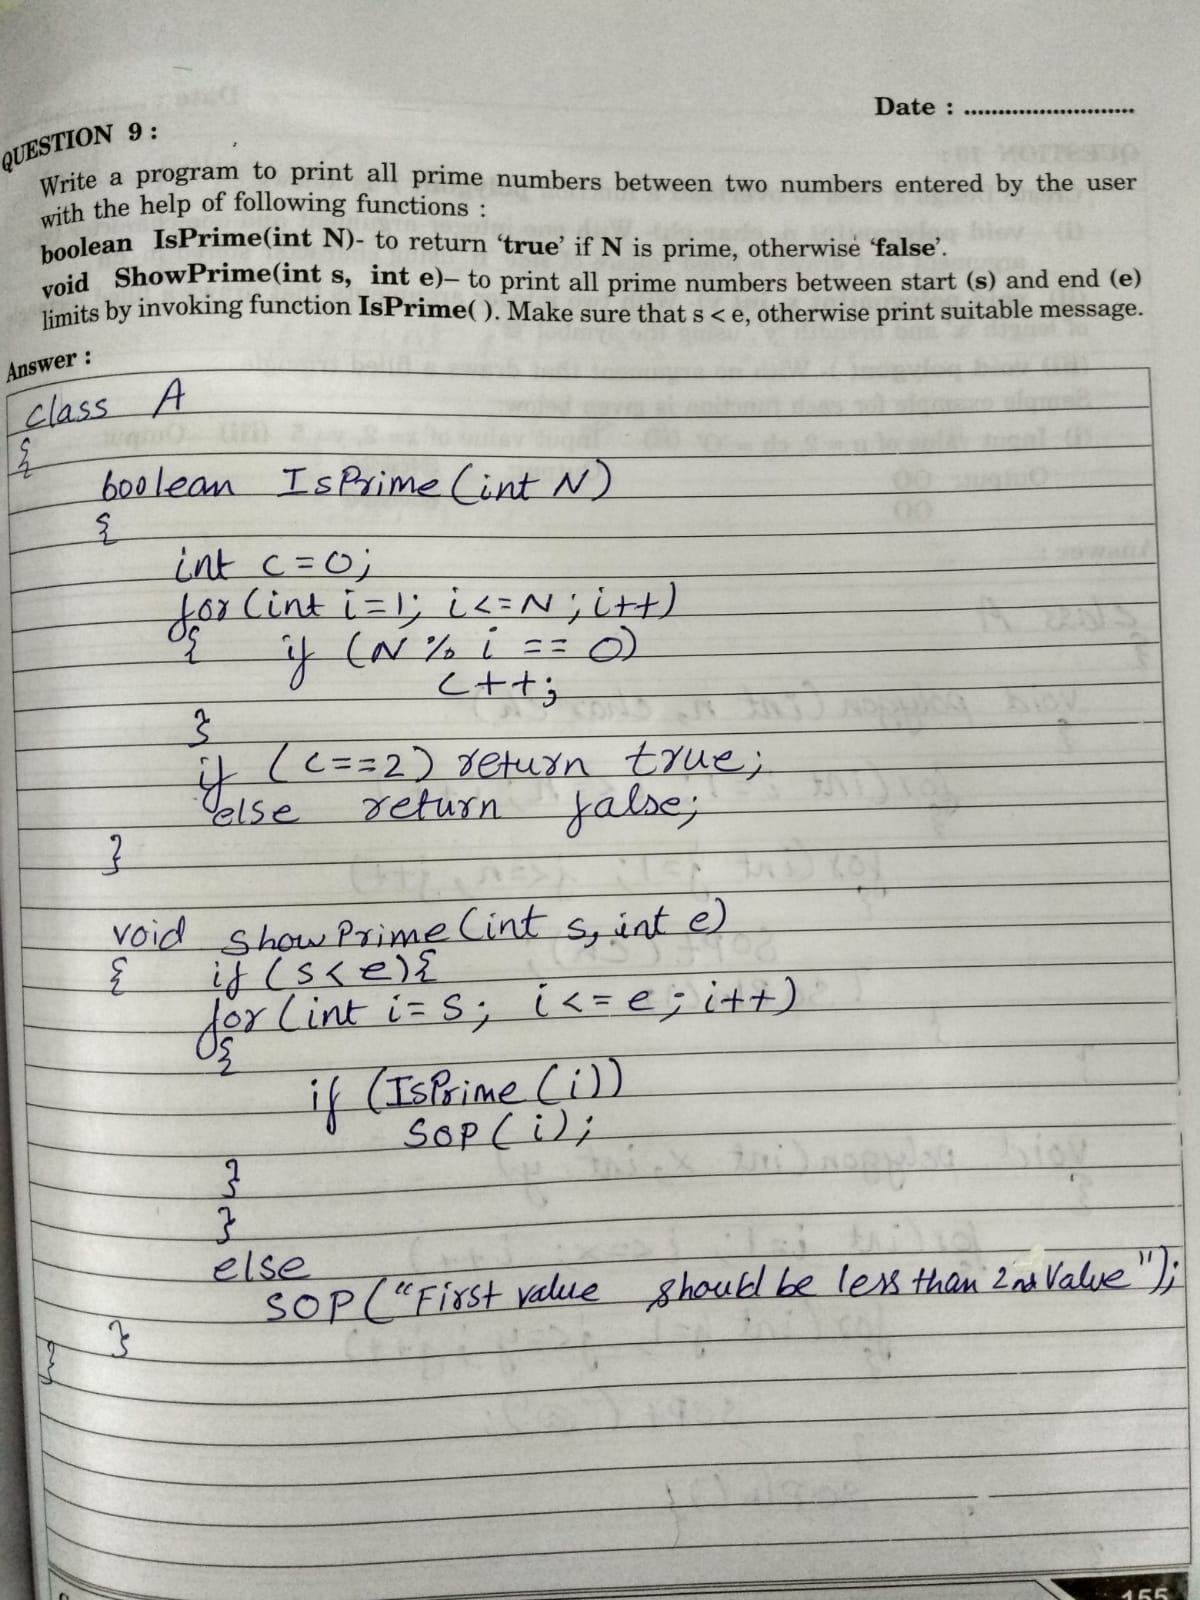 Date : ..........................
QUESTION 9 :
Write a program to print all prime numbers between two numbers entered by the user
with the help of following functions :
boolean IsPrime(int N)- to return ‘true’ if N is prime, otherwise ‘false’.
void ShowPrime(int s, int e)– to print all prime numbers between start (s) and end (e)
limits by invoking function IsPrime( ). Make sure that s < e, otherwise print suitable message.
Answer :
class A
{
boolean IsPrime(int N)
{
int c=0;
for(int i=1; i<=N;i++)
{ if (N % i == 0)
c++;
}
if (c==2) return true;
else return false;
}
void showPrime(int s, int e)
{ if (s<e){
for(int i=s; i<=e; i++)
{
if (IsPrime(i))
SOP(i);
}
}
else
SOP("First value should be less than 2nd Value");
}
}
155